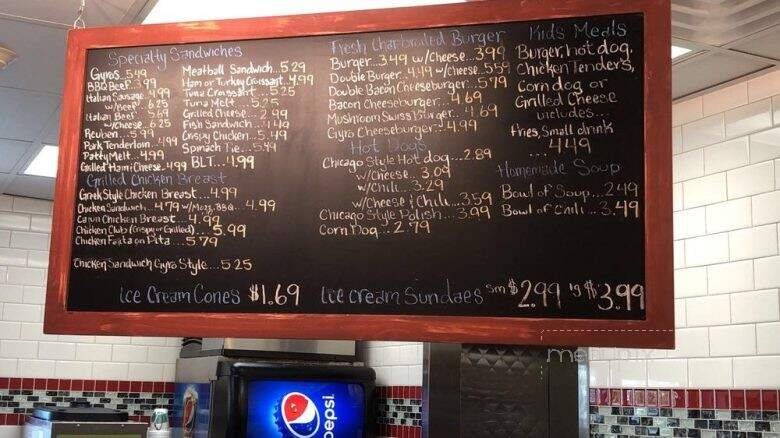 Specialty Sandwiches
Gyros 5.49
BBQ Beef 3.99
Italian Sausage 4.99
w/Beef 6.25
Italian Beef 5.69
w/cheese 6.25
Reuben...5.99
Pork Tenderloin...4.99
Patty Melt...4.99
Grilled Ham & Cheese..4.99
Meatball Sandwich...5.29
Ham or Turkey Croissant..4.99
Tuna Croissant...5.25
Tuna Melt...5.25
Grilled Cheese...2.99
Fish Sandwich...4.49
Crispy Chicken...5.49
Spinach Pie...5.49
BLT...4.99
Grilled Chicken Breast
Greek Style Chicken Breast...4.99
Chicken Sandwich...4.79 w/Mozz, BBQ...4.99
Cajun Chicken Breast...4.99
Chicken Club (Crispy or Grilled)...5.99
Chicken Fajita on Pita...5.79
Chicken Sandwich Gyro Style...5.25
Fresh Charbroiled Burger
Burger...3.49 w/cheese...3.99
Double Burger...4.49 w/cheese...5.59
Double Bacon Cheeseburger...5.79
Bacon Cheeseburger...4.69
Mushroom Swiss Burger...4.69
Gyro Cheeseburger...4.99
Hot Dogs
Chicago Style Hot dog...2.89
w/Cheese...3.09
w/Chili...3.29
w/Cheese & Chili...3.59
Chicago Style Polish...3.99
Corn Dog...2.79
Kids Meals
Burger, hot dog,
Chicken Tenders,
Corn dog or
Grilled Cheese
includes...
fries, Small drink
...4.49
Homemade Soup
Bowl of Soup...2.49
Bowl of Chili...3.49
Ice Cream Cones $1.69
Ice Cream Sundaes sm $2.99 lg $3.99
pepsi